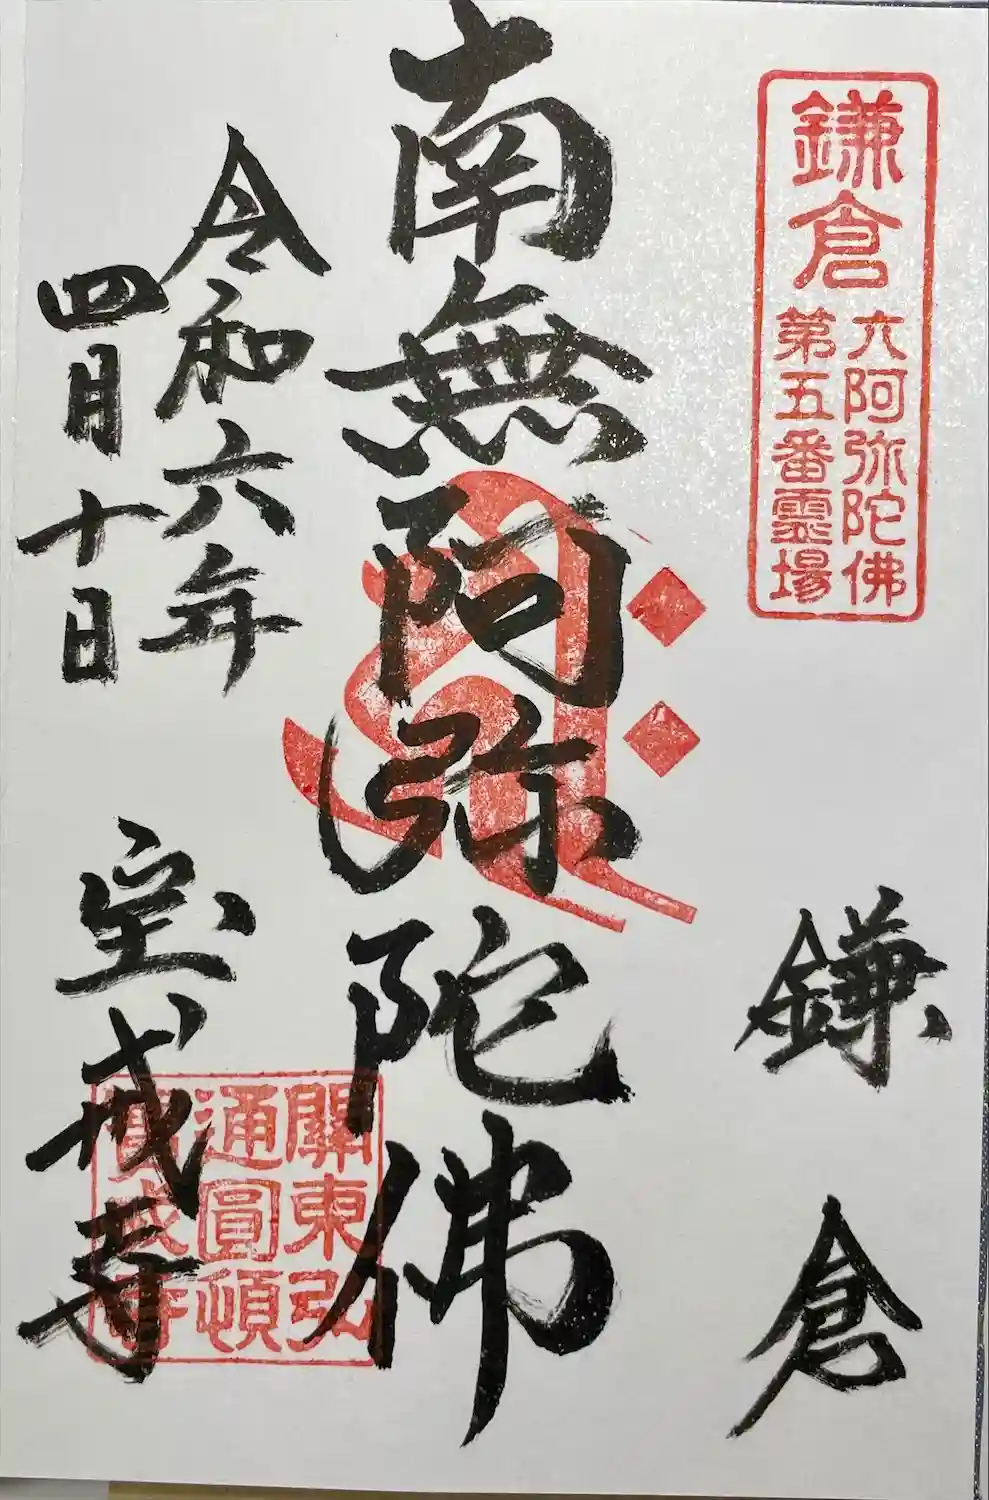 鎌倉
六阿弥陀佛
第五番霊場
鎌倉
南無阿弥陀佛
令和六年
四月十日
宝戒寺
關東弘
通圓頓
寳戒寺